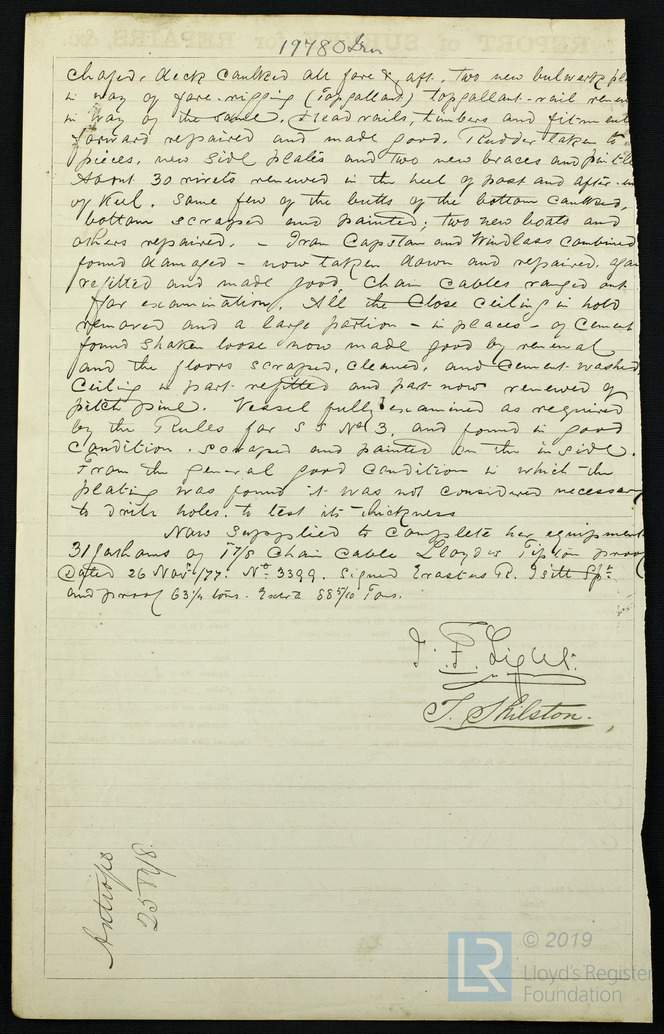 19780 Iron
chafed, deck caulked all fore & aft, two new bulwark pla
in way of fore-rigging (Topgallant) topgallant-rail renew
in way of the same, Head rails, timbers and fitment
forward repaired and made good. Rudder taken to
pieces, new side plates and two new braces and pintle
About 30 rivets renewed in the heel of post and after
of Keel. Some few of the butts of the bottom caulked,
bottom scraped and painted; two new boats and
others repaired. – Iron Capstan and Windlass combined
found damaged – now taken down and repaired, again
refitted and made good. Chain Cables ranged out
for examination. All the Close Ceiling in hold
removed and a large portion – in places – of Cement
found shaken loose now made good by renewal
and the floors scraped, cleaned, and Cement-washed
Ceiling in part refitted and part now renewed of
pitch pine. Vessel fully examined as required
by the Rules for S S No 3, and found in good
Condition. scraped and painted on the inside.
From the general good condition in which the
plating was found it was not considered necessary
to drill holes. to test its thickness
Now supplied to complete her equipment
31 fathoms of 1 7/8 Chain Cable Lloyds Tipton proof
Dated 26 Nov/77. No. 3399. Signed Erastus R. Spt
and proof 63 1/4 tons. 88 5/10 Tons.
J. F. Light.
T. Shilston.
Antrops
25
REPORT of SURVEY for REPAIRS, &c
LR
© 2019
Lloyd's Register
Foundation